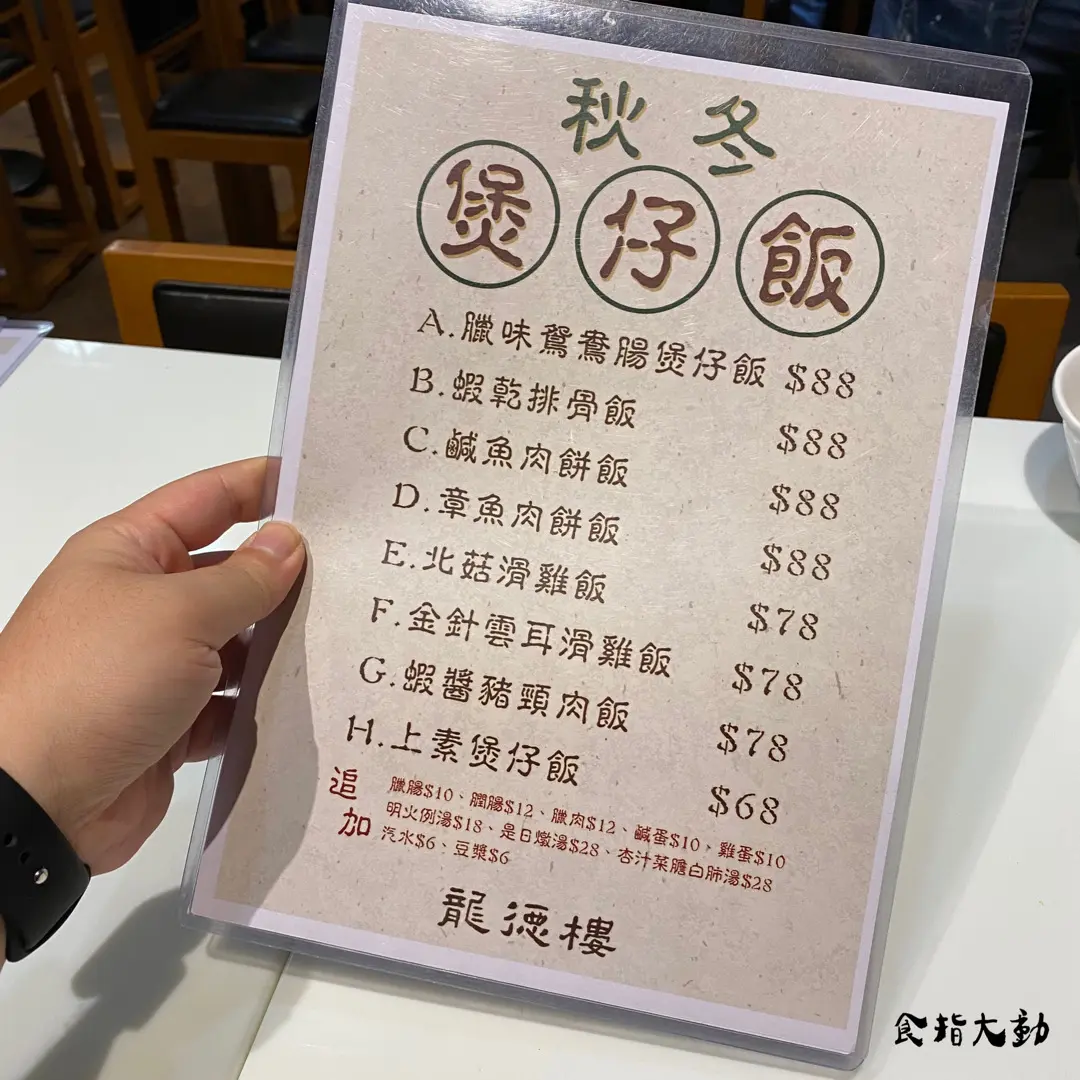 秋冬
煲仔飯
A.臘味鴛鴦腸煲仔飯 $88
B.蝦乾排骨飯 $88
C.鹹魚肉餅飯 $88
D.章魚肉餅飯 $88
E.北菇滑雞飯 $78
F.金針雲耳滑雞飯 $78
G.蝦醬豬頸肉飯 $78
H.上素煲仔飯 $68
追加
臘腸$10、膶腸$12、臘肉$12、鹹蛋$10、雞蛋$10
明火例湯$18、是日燉湯$28、杏汁菜膽白肺湯$28
汽水$6、豆漿$6
龍德樓
食指大動